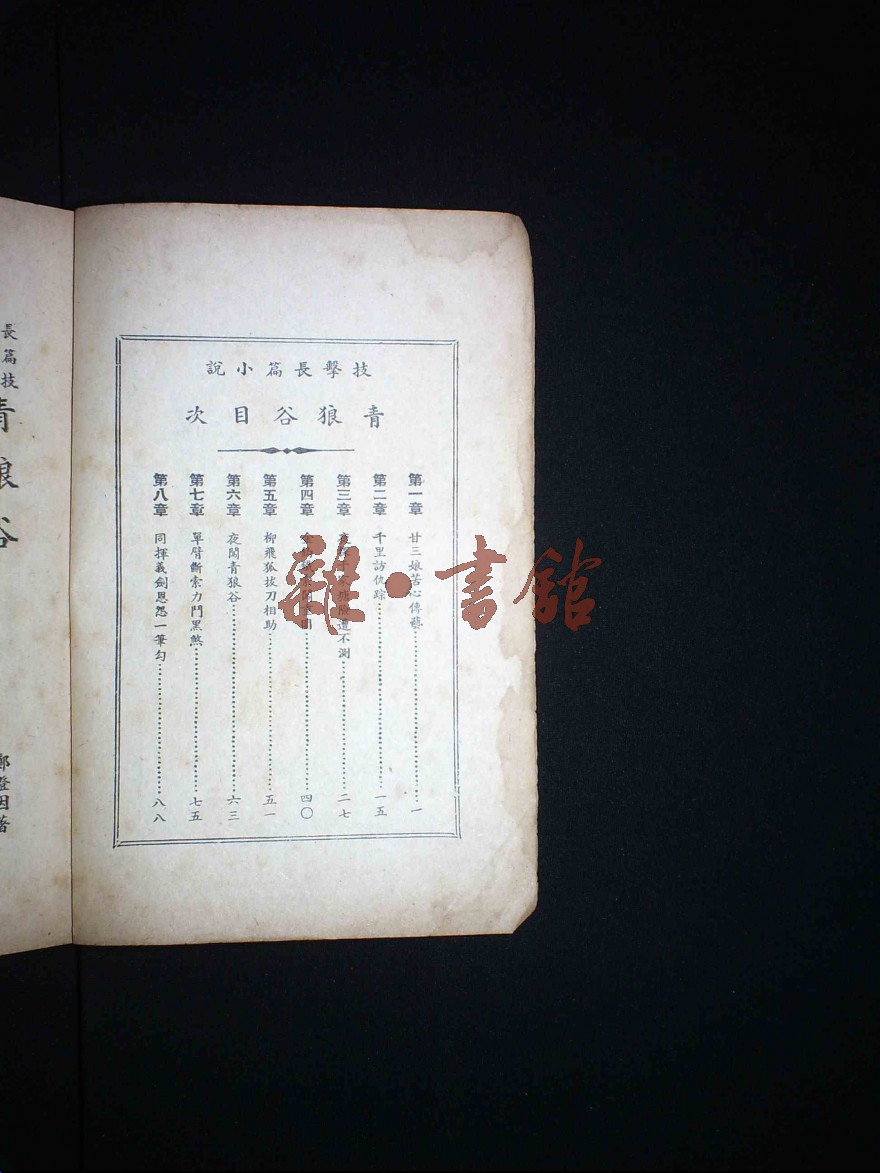 技擊長篇小說
青狼谷目次
第一章 廿三娘苦心傳藝 一
第二章 千里訪仇踪 一五
第三章 夜 險遭不測 二七
第四章 四〇
第五章 柳飛狐拔刀相助 五一
第六章 夜闖青狼谷 六三
第七章 單臂斷索力鬥黑煞 七五
第八章 同揮義劍恩怨一筆勾 八八
長篇技
青狼谷
鄭證因著
雜·書館